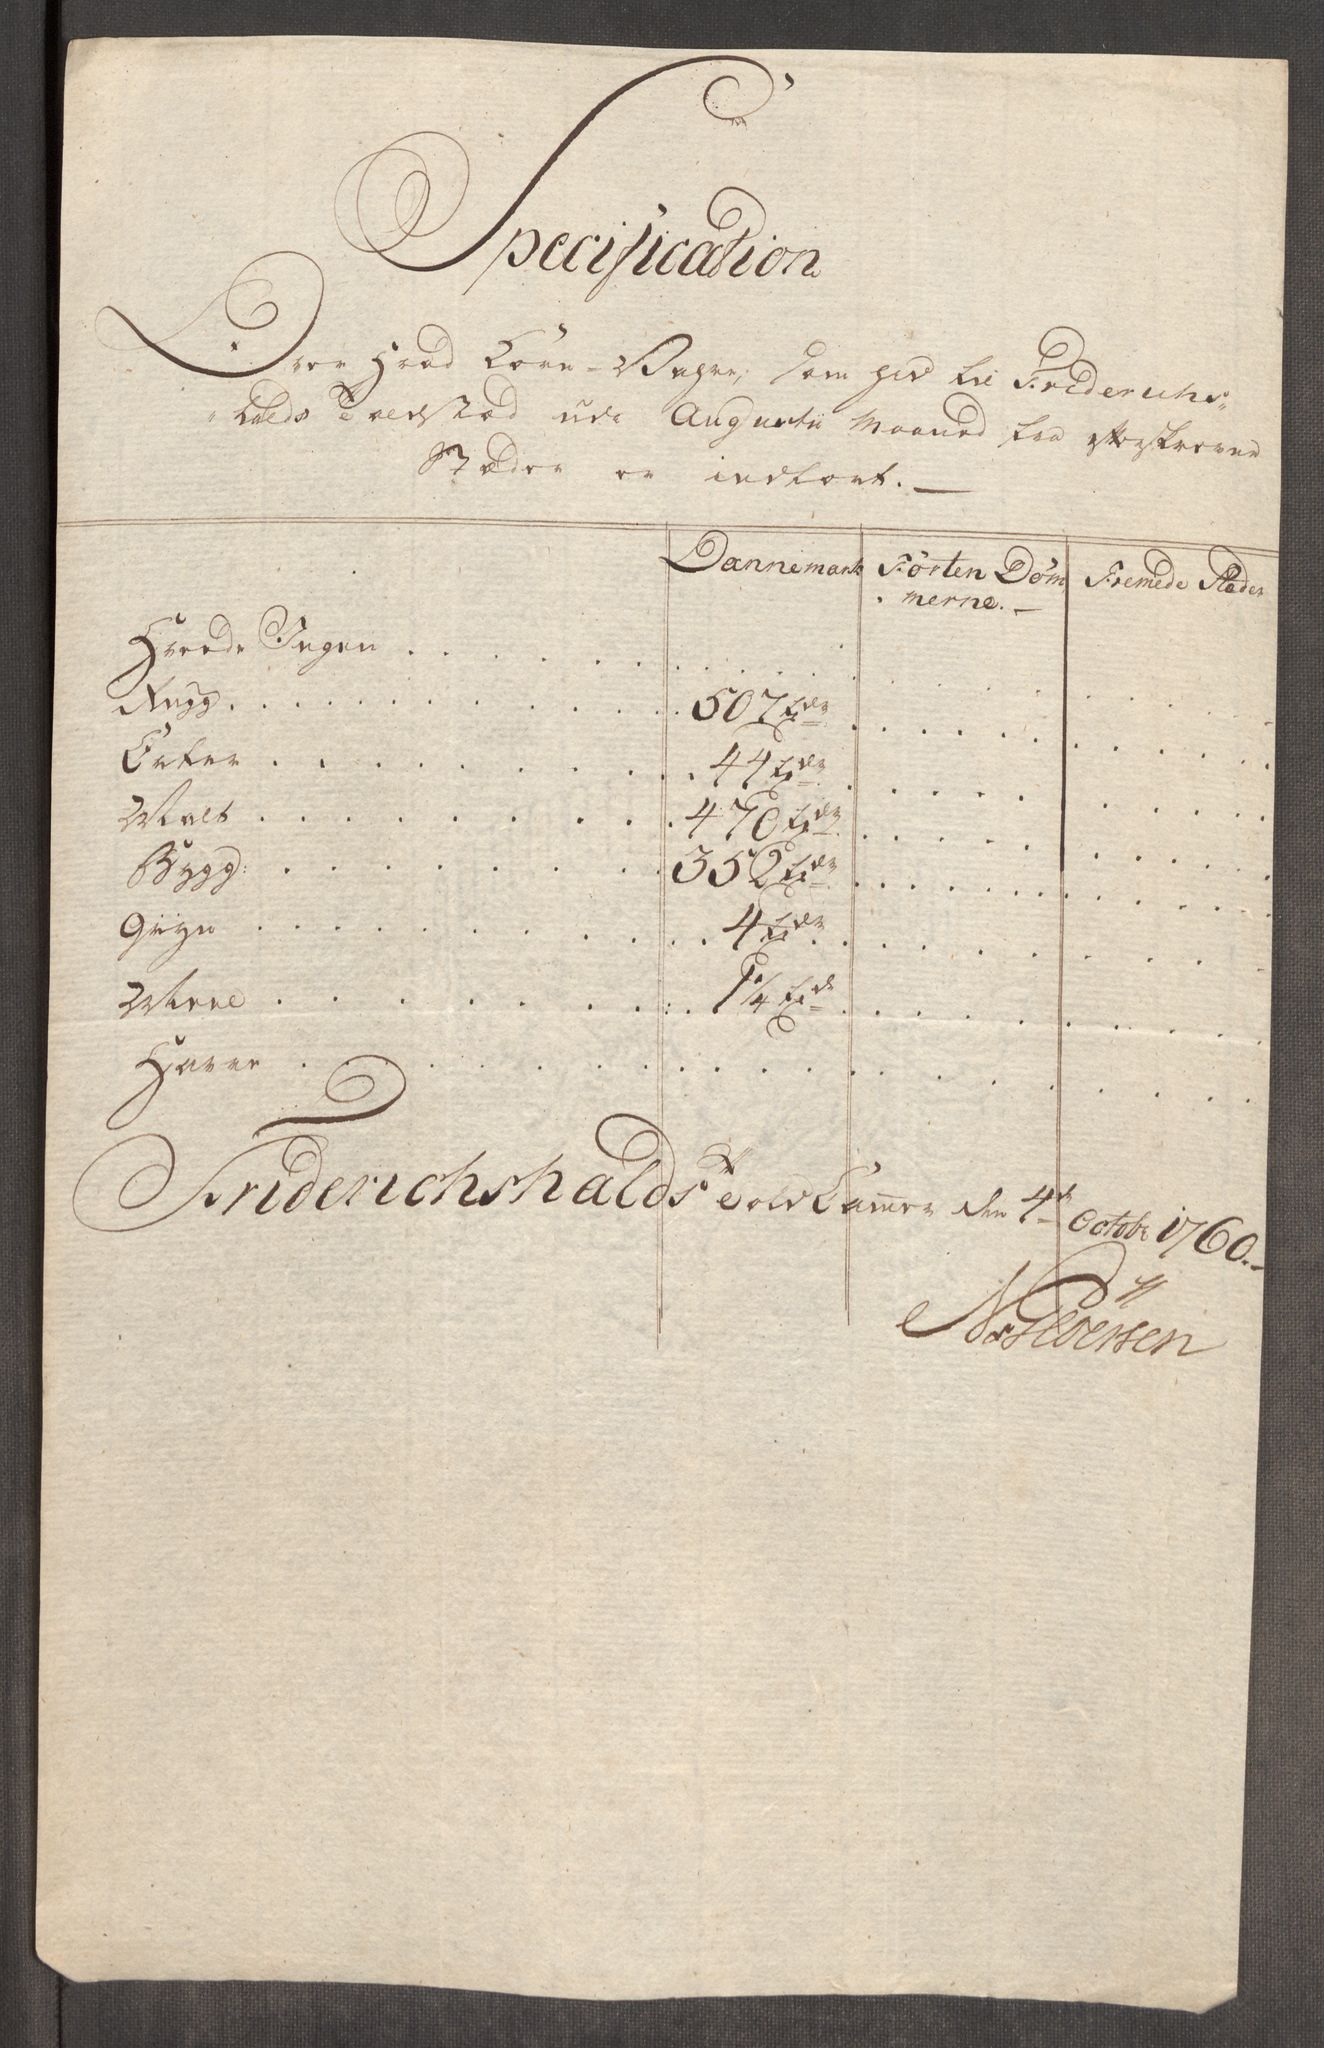 Specification
Over Hvad Korn-Vahre, som her til Friderichs,,
,,halds Toldstæd udi Augustii Maaned fra efterskrevne
Stæder er indført. —
Dannemark Førsten Døm,, Fremede Stæder
merne. —
Hvede Ingen
Rug 507 tdr
Erter 44 tdr
Malt 470 tdr
Byg: 352 tdr
Gryn 4 tdr
Meel 1 1/4 td
Havre
Friderichshalds Told Camer den 4de Octobr 1760. —